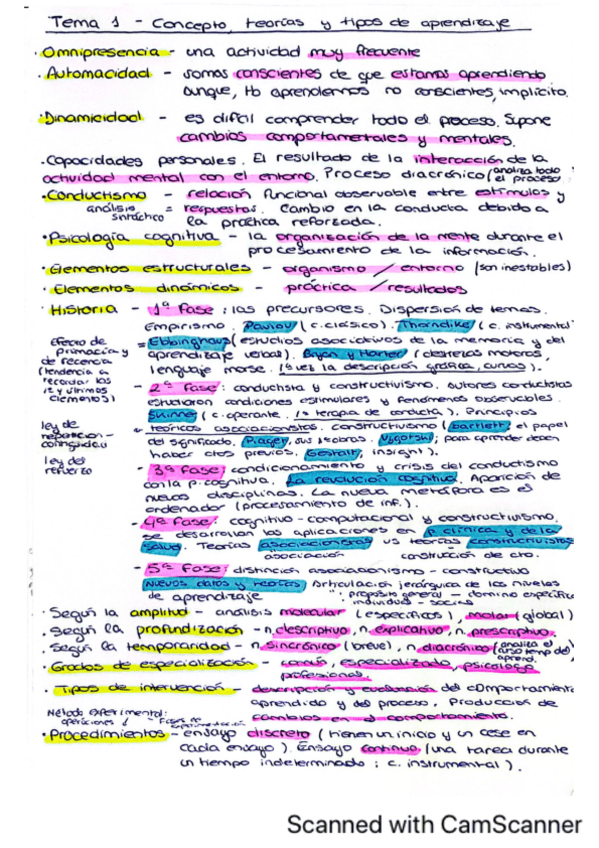 Tema 1 - Concepto, teorías y tipos de aprendizaje
· Omnipresencia - una actividad muy frecuente
· Automacidad - somos conscientes de que estamos aprendiendo
aunque, tb aprendemos no conscientes, implícito.
· Dinamicidad - es difícil comprender todo el proceso. Supone
cambios comportamentales y mentales.
· Capacidades personales. El resultado de la interacción de la
actividad mental con el entorno. Proceso diacrónico (analiza todo el proceso
· Conductismo - relación funcional observable entre estímulos y
análisis sintáctico = respuestas. Cambio en la conducta debido a
la práctica reforzada.
· Psicología cognitiva - la organización de la mente durante el
procesamiento de la información.
· Elementos estructurales - organismo / entorno (son inestables)
· Elementos dinámicos - práctica / resultados
· Historia - 1ª Fase: las precursores. Dispersión de temas.
Empirismo. Pavlov (c. clásico). Thorndike (c. instrumental
Efecto de primacía y de recencia (tendencia a recordar los 1º y últimos elementos)
= Ebbinghaus (estudios asociativos de la memoria y del
aprendizaje verbal). Bryan y Harter (destrezas motoras,
lenguaje morse. 1ª vez la descripción gráfica, curvas).
- 2ª Fase: conductista y constructivismo. autores conductistas
estudiaron condiciones estimulares y fenómenos observables.
Skinner (c. operante. 1ª terapia de conducta). Principios
ley de repetición - contigüidad
ley del refuerzo
teóricos asociacionistas. constructivismo (bartlett; el papel
del significado. Piaget, sus teorías. Vygotski; para aprender deben
haber ctos previos. Gestalt, insight).
- 3ª Fase; condicionamiento y crisis del conductismo
con la p. cognitiva. La revolución cognitiva. Aparición de
nuevas disciplinas. La nueva metáfora es el
ordenador (procesamiento de inf.).
- 4ª Fase: cognitivo-computacional y constructivismo,
se desarrollan las aplicaciones en p. clínica y de la
salud. Teorías asociacionistas vs teorías constructivistas
asociación construcción de cto.
- 5ª Fase: distinción asociacionismo - constructivo
Nuevos datos y teorías Articulación jerárquica de los niveles
de aprendizaje
· propósito general - dominio específico
individual - social
· Según la amplitud - análisis molecular (específicos), molar (global)
· Según la profundización - n. descriptivo, n. explicativo, n. prescriptivo.
· Según la temporaridad - n. sincrónico (breve), n. diacrónico (analiza el curso temp del aprend.
· Grados de especialización - común, especializado, psicólogo
profesional.
· Tipos de intervención - descripción y evaluación del comportamiento
aprendido y del proceso. Producción de
cambios en el comportamiento.
Método experimental: operaciones
· Procedimientos - ensayo discreto (tienen un inicio y un cese en
cada ensayo). Ensayo continuo (una tarea durante
un tiempo indeterminado: c. instrumental).
Scanned with CamScanner